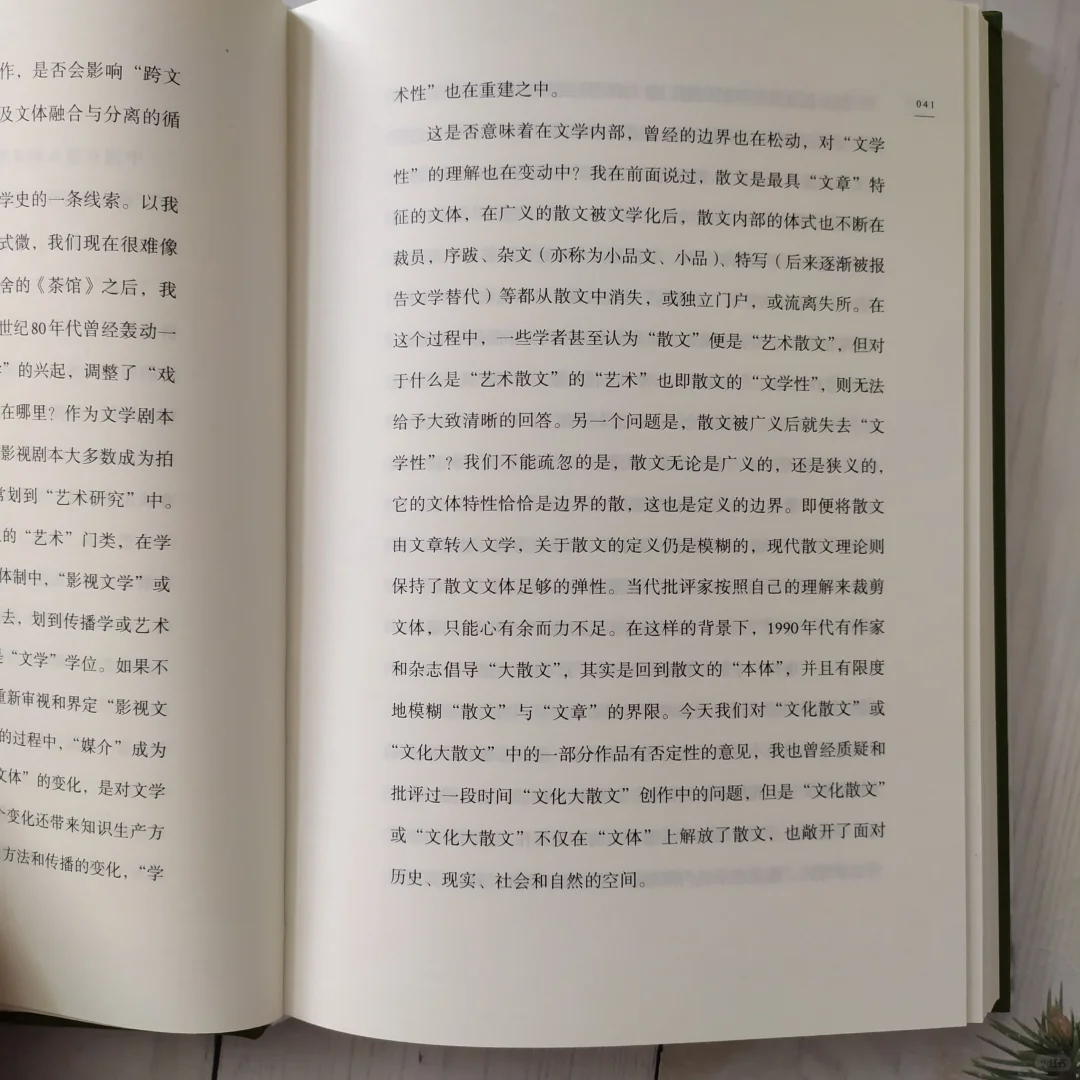 作，是否会影响“跨文
及文体融合与分离的循
学史的一条线索。以我
式微，我们现在很难像
舍的《茶馆》之后，我
世纪80年代曾经轰动一
”的兴起，调整了“戏
在哪里？作为文学剧本
影视剧本大多数成为拍
常划到“艺术研究”中。
的“艺术”门类，在学
体制中，“影视文学”或
去，划到传播学或艺术
是“文学”学位。如果不
重新审视和界定“影视文
的过程中，“媒介”成为
文体”的变化，是对文学
个变化还带来知识生产方
方法和传播的变化，“学
041
术性”也在重建之中。
这是否意味着在文学内部，曾经的边界也在松动，对“文学
性”的理解也在变动中？我在前面说过，散文是最具“文章”特
征的文体，在广义的散文被文学化后，散文内部的体式也不断在
裁员，序跋、杂文（亦称为小品文、小品）、特写（后来逐渐被报
告文学替代）等都从散文中消失，或独立门户，或流离失所。在
这个过程中，一些学者甚至认为“散文”便是“艺术散文”，但对
于什么是“艺术散文”的“艺术”也即散文的“文学性”，则无法
给予大致清晰的回答。另一个问题是，散文被广义后就失去“文
学性”？我们不能疏忽的是，散文无论是广义的，还是狭义的，
它的文体特性恰恰是边界的散，这也是定义的边界。即便将散文
由文章转入文学，关于散文的定义仍是模糊的，现代散文理论则
保持了散文文体足够的弹性。当代批评家按照自己的理解来裁剪
文体，只能心有余而力不足。在这样的背景下，1990年代有作家
和杂志倡导“大散文”，其实是回到散文的“本体”，并且有限度
地模糊“散文”与“文章”的界限。今天我们对“文化散文”或
“文化大散文”中的一部分作品有否定性的意见，我也曾经质疑和
批评过一段时间“文化大散文”创作中的问题，但是“文化散文”
或“文化大散文”不仅在“文体”上解放了散文，也敞开了面对
历史、现实、社会和自然的空间。